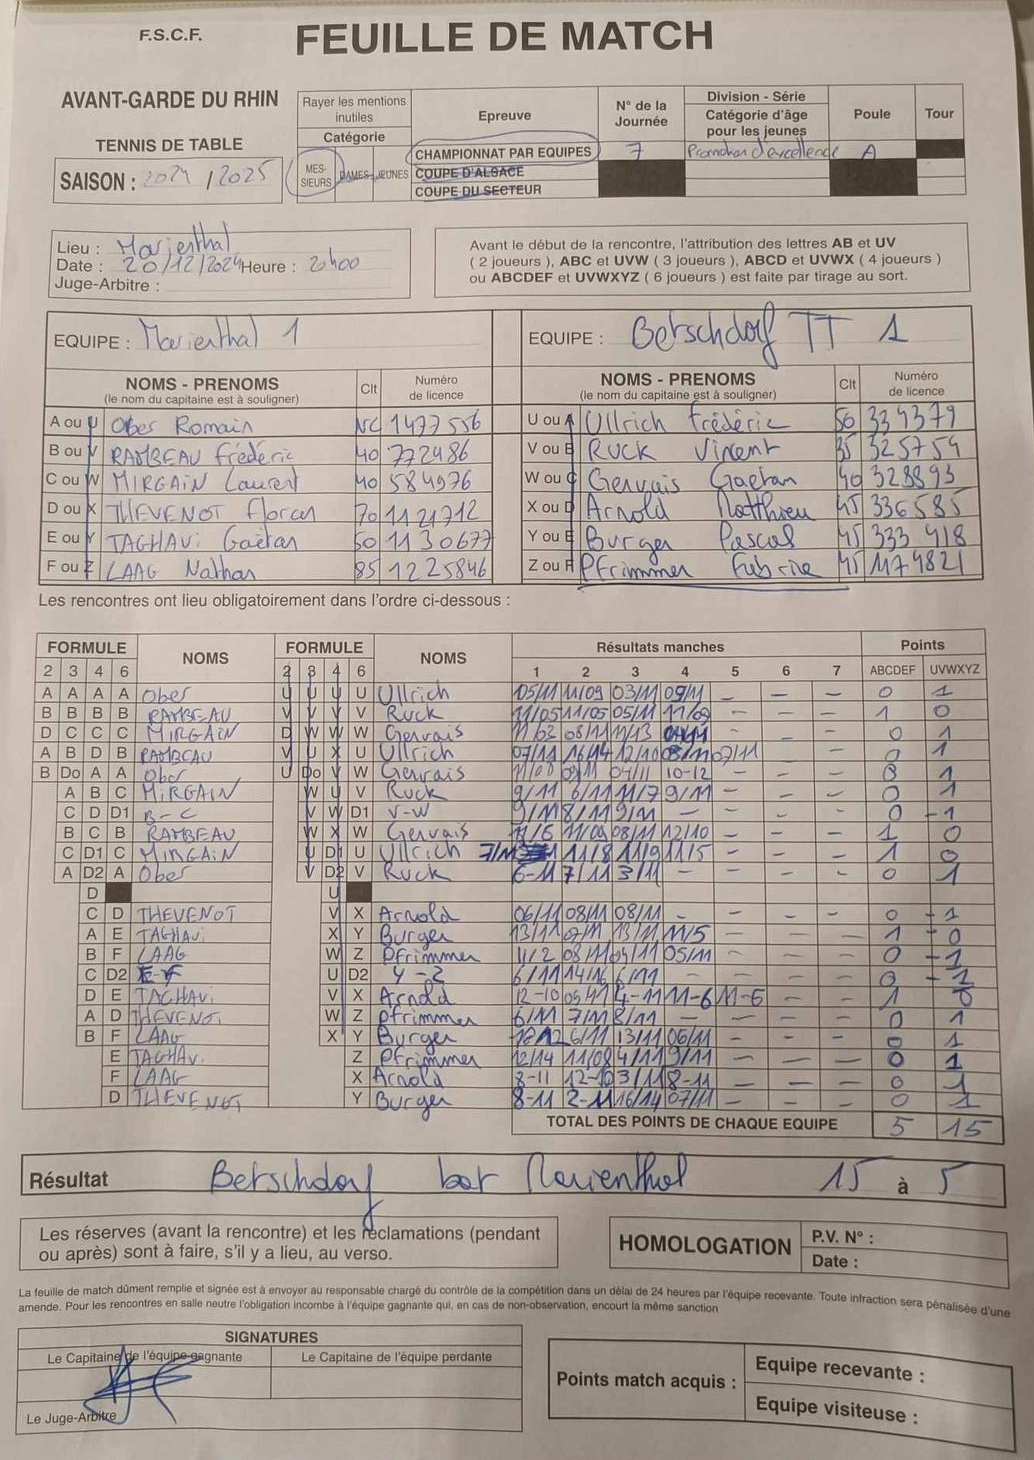 F.S.C.F.
FEUILLE DE MATCH
AVANT-GARDE DU RHIN
TENNIS DE TABLE
SAISON : 2024 / 2025
Rayer les mentions inutiles
Catégorie
MES-SIEURS DAMES JEUNES
Epreuve
CHAMPIONNAT PAR EQUIPES
COUPE D'ALSACE
COUPE DU SECTEUR
N° de la Journée
7
Division - Série
Catégorie d'âge pour les jeunes
Promotion d'excellence
Poule
A
Tour
Lieu : Marienthal
Date : 20/12/2024 Heure : 20h00
Juge-Arbitre :
Avant le début de la rencontre, l'attribution des lettres AB et UV
( 2 joueurs ), ABC et UVW ( 3 joueurs ), ABCD et UVWX ( 4 joueurs )
ou ABCDEF et UVWXYZ ( 6 joueurs ) est faite par tirage au sort.
EQUIPE : Marienthal 1
EQUIPE : Betschdorf TT 1
NOMS - PRENOMS Clt Numéro de licence
(le nom du capitaine est à souligner)
NOMS - PRENOMS Clt Numéro de licence
(le nom du capitaine est à souligner)
A ou U Ober Romain NC 1477556 U ou A Ullrich Frédéric 50 334379
B ou V RAMBEAU Frédéric 40 772486 V ou B Ruck Vincent 35 325754
C ou W MIRGAIN Laurent 40 584976 W ou C Gervais Gaetan 40 328893
D ou X THEVENOT Florian 70 1121712 X ou D Arnold Matthieu 45 336585
E ou Y TAGHAVI Gaëtan 50 1130677 Y ou E Burger Pascal 45 333 418
F ou Z LAAG Nathan 85 1225846 Z ou F Pfrimmer Fabrice 45 1174821
Les rencontres ont lieu obligatoirement dans l'ordre ci-dessous :
FORMULE NOMS FORMULE NOMS Résultats manches Points
2 3 4 6 2 3 4 6 1 2 3 4 5 6 7 ABCDEF UVWXYZ
A A A A Ober U U U U Ullrich 05/11 11/09 03/11 09/11 - - - 0 1
B B B B RAMBEAU V V V V Ruck 11/05 11/05 05/11 11/09 - - - 1 0
D C C C MIRGAIN D W W W Gervais 11/03 08/11 11/13 - - - 0 1
A B D B RAMBEAU V U X U Ullrich 07/11 16/14 12/10 08/11 07/11 - 0 1
B Do A A Ober U Do V W Gervais 04/11 10-12 - - - 1
A B C MIRGAIN W U V Ruck 9/11 6/11 11/7 9/11 - - - 0 1
C D D1 B-C V W D1 V-W 9/11 8/11 9/11 - - - - 0 1
B C B RAMBEAU W X W Gervais 11/6 11/09 08/11 12/10 - - - 1 0
C D1 C MIRGAIN U D1 U Ullrich 7/11 11/8 11/9 11/5 - - - 1 0
A D2 A Ober V D2 V Ruck 6-11 7/11 3/11 - - - - 0 1
D U
C D THEVENOT V X Arnold 06/11 08/11 08/11 - - - - 0 1
A E TAGHAVI X Y Burger 13/11 07/11 13/11 11/5 - - - 1 0
B F LAAG W Z Pfrimmer 11/2 08/11 09/11 05/11 - - - 0 1
C D2 E-F U D2 Y-Z 6/11 14/16 6/11 - - - - 0 1
D E TAGHAVI V X Arnold 12-10 05/11 4-11 11-6 11-6 - - 1 0
A D THEVENOT W Z Pfrimmer 6/11 7/11 8/11 - - - - 0 1
B F LAAG X Y Burger 10/12 6/11 13/11 06/11 - - - 0 1
E TAGHAVI Z Pfrimmer 12/14 11/08 4/11 9/11 - - - 0 1
F LAAG X Arnold 8-11 12-10 3/11 8-11 - - - 0 1
D THEVENOT Y Burger 8-11 2-11 16/14 07/11 - - - 0 1
TOTAL DES POINTS DE CHAQUE EQUIPE 5 15
Résultat Betschdorf bat Marienthal 15 à 5
Les réserves (avant la rencontre) et les réclamations (pendant
ou après) sont à faire, s'il y a lieu, au verso.
HOMOLOGATION
P.V. N° :
Date :
La feuille de match dûment remplie et signée est à envoyer au responsable chargé du contrôle de la compétition dans un délai de 24 heures par l'équipe recevante. Toute infraction sera pénalisée d'une
amende. Pour les rencontres en salle neutre l'obligation incombe à l'équipe gagnante qui, en cas de non-observation, encourt la même sanction
SIGNATURES
Le Capitaine de l'équipe gagnante Le Capitaine de l'équipe perdante
Le Juge-Arbitre
Points match acquis :
Equipe recevante :
Equipe visiteuse :